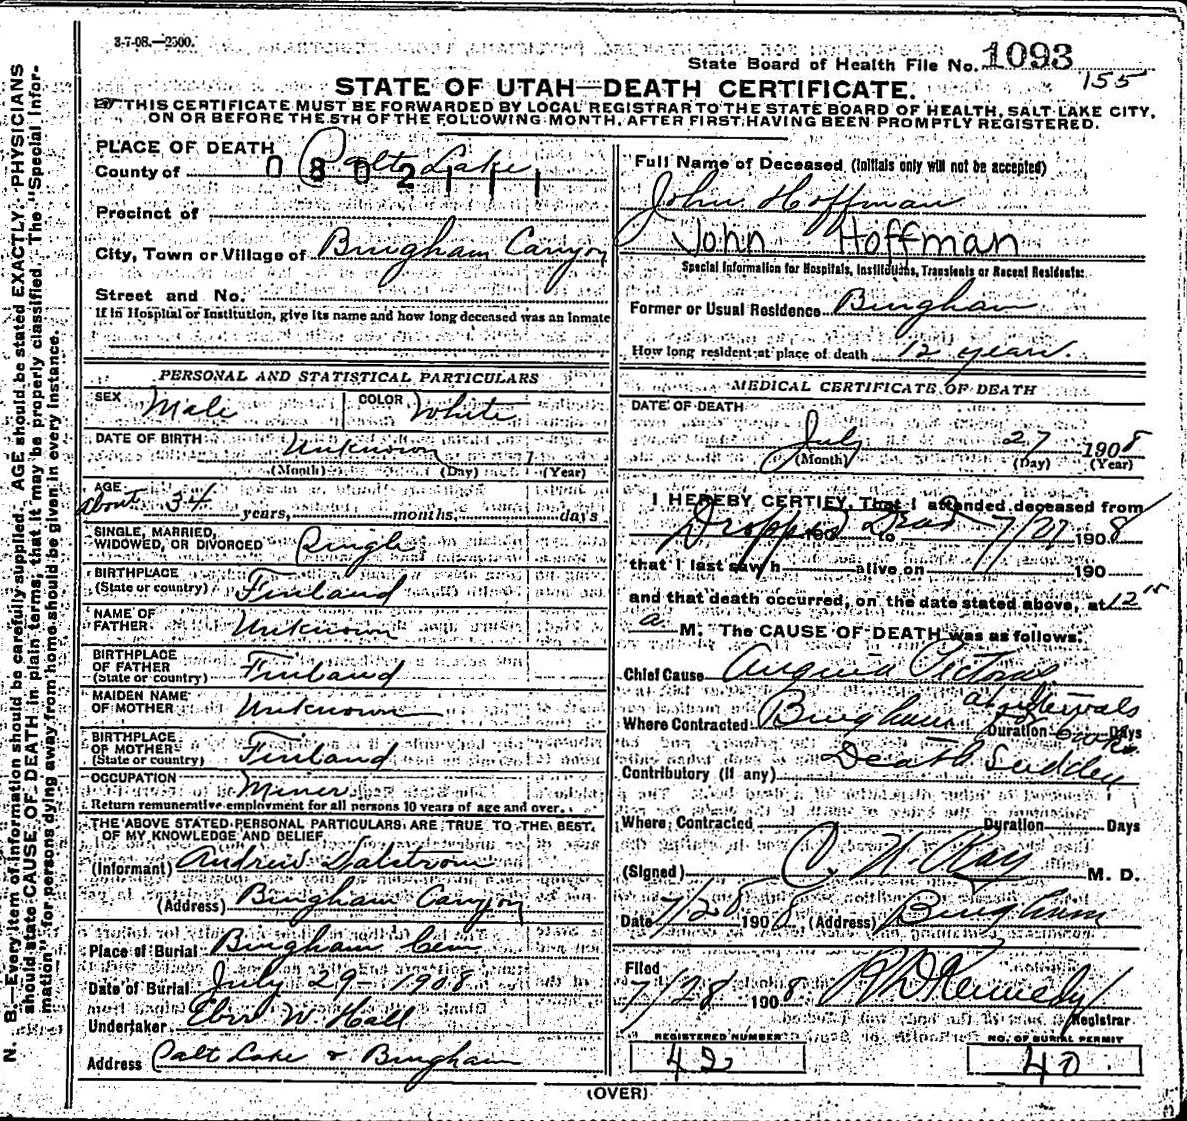 3-7-08.—2500.
State Board of Health File No. 1093
155
STATE OF UTAH—DEATH CERTIFICATE.
THIS CERTIFICATE MUST BE FORWARDED BY LOCAL REGISTRAR TO THE STATE BOARD OF HEALTH, SALT LAKE CITY,
ON OR BEFORE THE 5TH OF THE FOLLOWING MONTH, AFTER FIRST HAVING BEEN PROMPTLY REGISTERED.
PLACE OF DEATH
County of Salt Lake
0 8 0 2 1 1 1
Precinct of
City, Town or Village of Bingham Canyon
Street and No.
If in Hospital or Institution, give its name and how long deceased was an inmate
Full Name of Deceased (Initials only will not be accepted)
John Hoffman
John Hoffman
Special Information for Hospitals, Institutions, Transients or Recent Residents:
Former or Usual Residence Bingham
How long resident at place of death 12 years.
PERSONAL AND STATISTICAL PARTICULARS
SEX Male COLOR White
DATE OF BIRTH Unknown
(Month) (Day) 1 (Year)
AGE
about 34 years, months, days
SINGLE, MARRIED,
WIDOWED, OR DIVORCED Single
BIRTHPLACE
(State or country) Finland
NAME OF
FATHER Unknown
BIRTHPLACE
OF FATHER
(State or country) Finland
MAIDEN NAME
OF MOTHER Unknown
BIRTHPLACE
OF MOTHER
(State or country) Finland
OCCUPATION Miner
Return remunerative employment for all persons 10 years of age and over.
THE ABOVE STATED PERSONAL PARTICULARS ARE TRUE TO THE BEST
OF MY KNOWLEDGE AND BELIEF
(Informant) Andrew Dalstrom
(Address) Bingham Canyon
Place of Burial Bingham Cem
Date of Burial July 29 - 1908
Undertaker Eber W Hall
Address Salt Lake & Bingham
MEDICAL CERTIFICATE OF DEATH
DATE OF DEATH
July 27 1908
(Month) (Day) (Year)
I HEREBY CERTIFY, That I attended deceased from
Dropped Dead 190 to 7/27 1908
that I last saw h alive on 190
and that death occurred, on the date stated above, at 12
a M. The CAUSE OF DEATH was as follows:
Chief Cause Angina Pectoris
at intervals
Where Contracted Bingham Duration for Days
Death Sudden
Contributory (if any)
Where Contracted Duration Days
(Signed) C. W. Ray M. D.
Date 7/28 1908 (Address) Bingham
Filed
7/28 1908 Kennedy
Registrar
REGISTERED NUMBER
42
NO. OF BURIAL PERMIT
40
(OVER)
N. B.—Every item of information should be carefully supplied. AGE should be stated EXACTLY. PHYSICIANS
should state CAUSE OF DEATH in plain terms, that it may be properly classified. The "Special Infor-
mation" for persons dying away from home should be given in every instance.